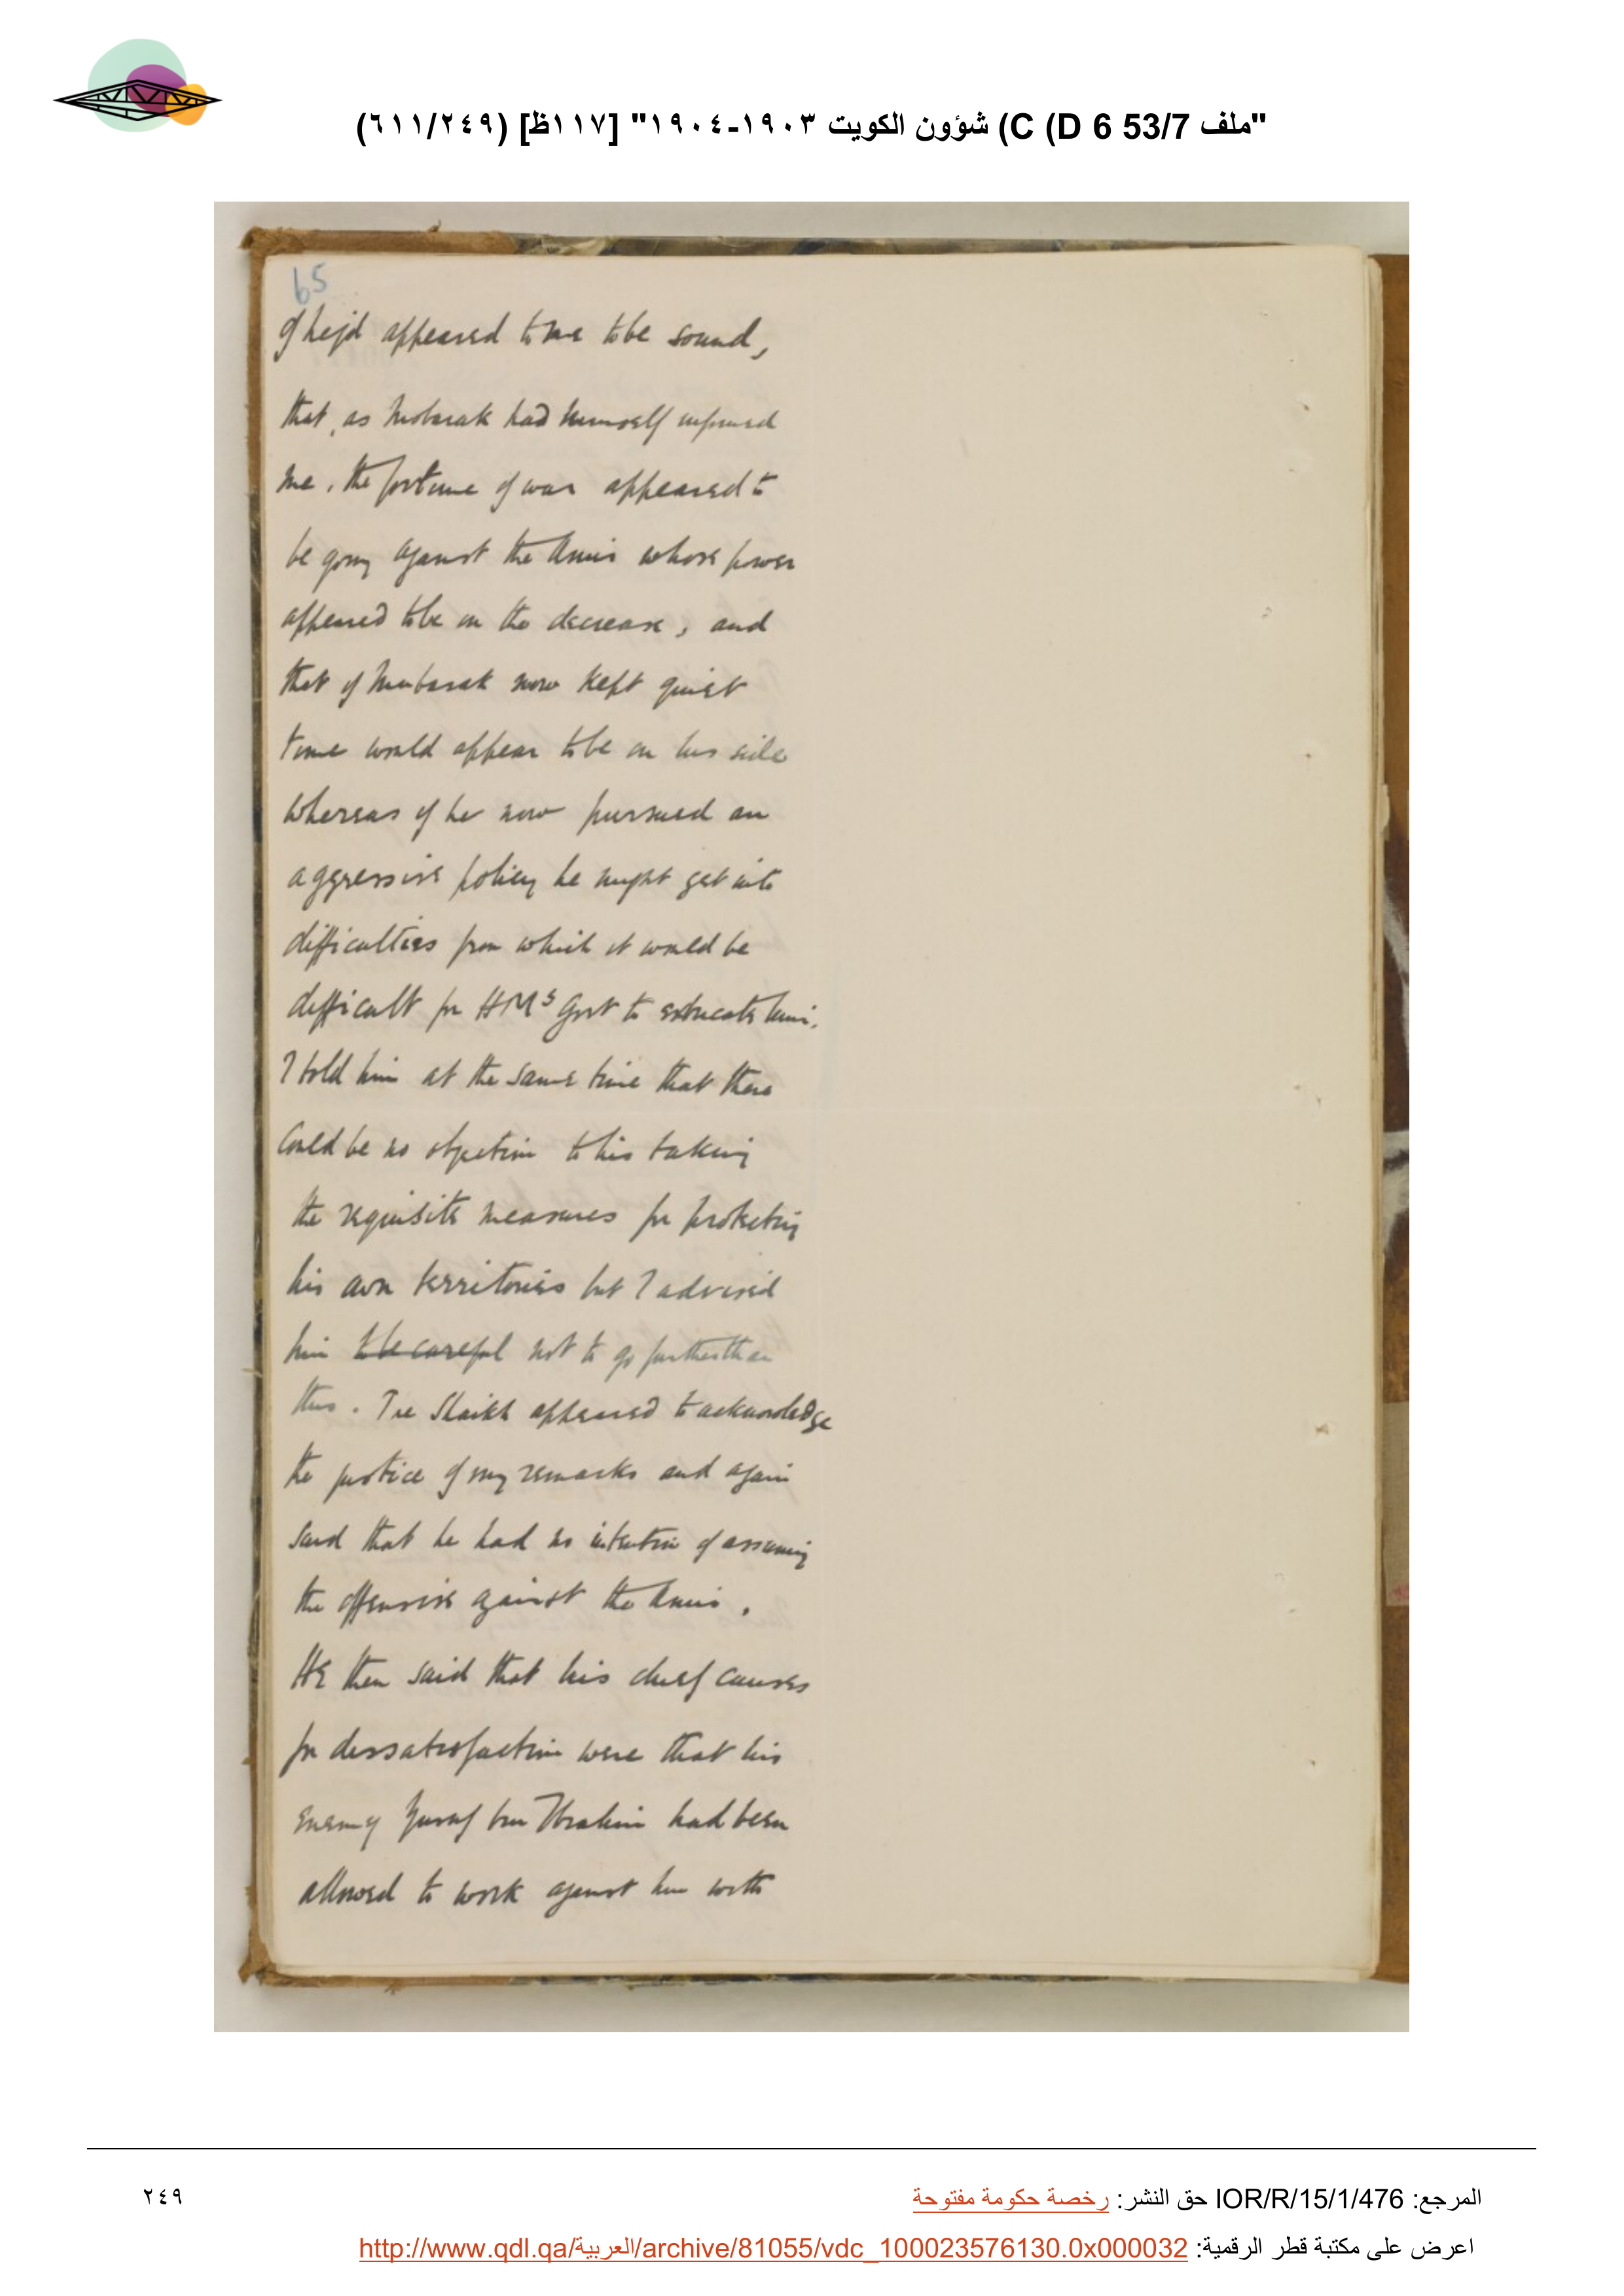 "ملف 53/7 C (D 6) شؤون الكويت ١٩٠٣-١٩٠٤" [١١٧ظ] (٦١١/٢٤٩)
65
of Nejd appeared to me to be sound,
that, as Mobarak had himself informed
me, the fortune of war appeared to
be going against the Amir whose power
appeared to be on the decrease, and
that if Mubarak now kept quiet
time would appear to be on his side
whereas if he now pursued an
aggressive policy he might get into
difficulties from which it would be
difficult for HM's Govt to extricate him.
I told him at the same time that there
could be no objection to his taking
the requisite measures for protecting
his own territories but I advised
him to be careful not to go further than
this. The Shaikh appeared to acknowledge
the justice of my remarks and again
said that he had no intention of assuming
the offensive against the Amir.
He then said that his chief causes
for dissatisfaction were that his
enemy Yusuf bin Ibrahim had been
allowed to work against him with
المرجع: IOR/R/15/1/476 حق النشر: رخصة حكومة مفتوحة
٢٤٩
اعرض على مكتبة قطر الرقمية: http://www.qdl.qa/العربية/archive/81055/vdc_100023576130.0x000032